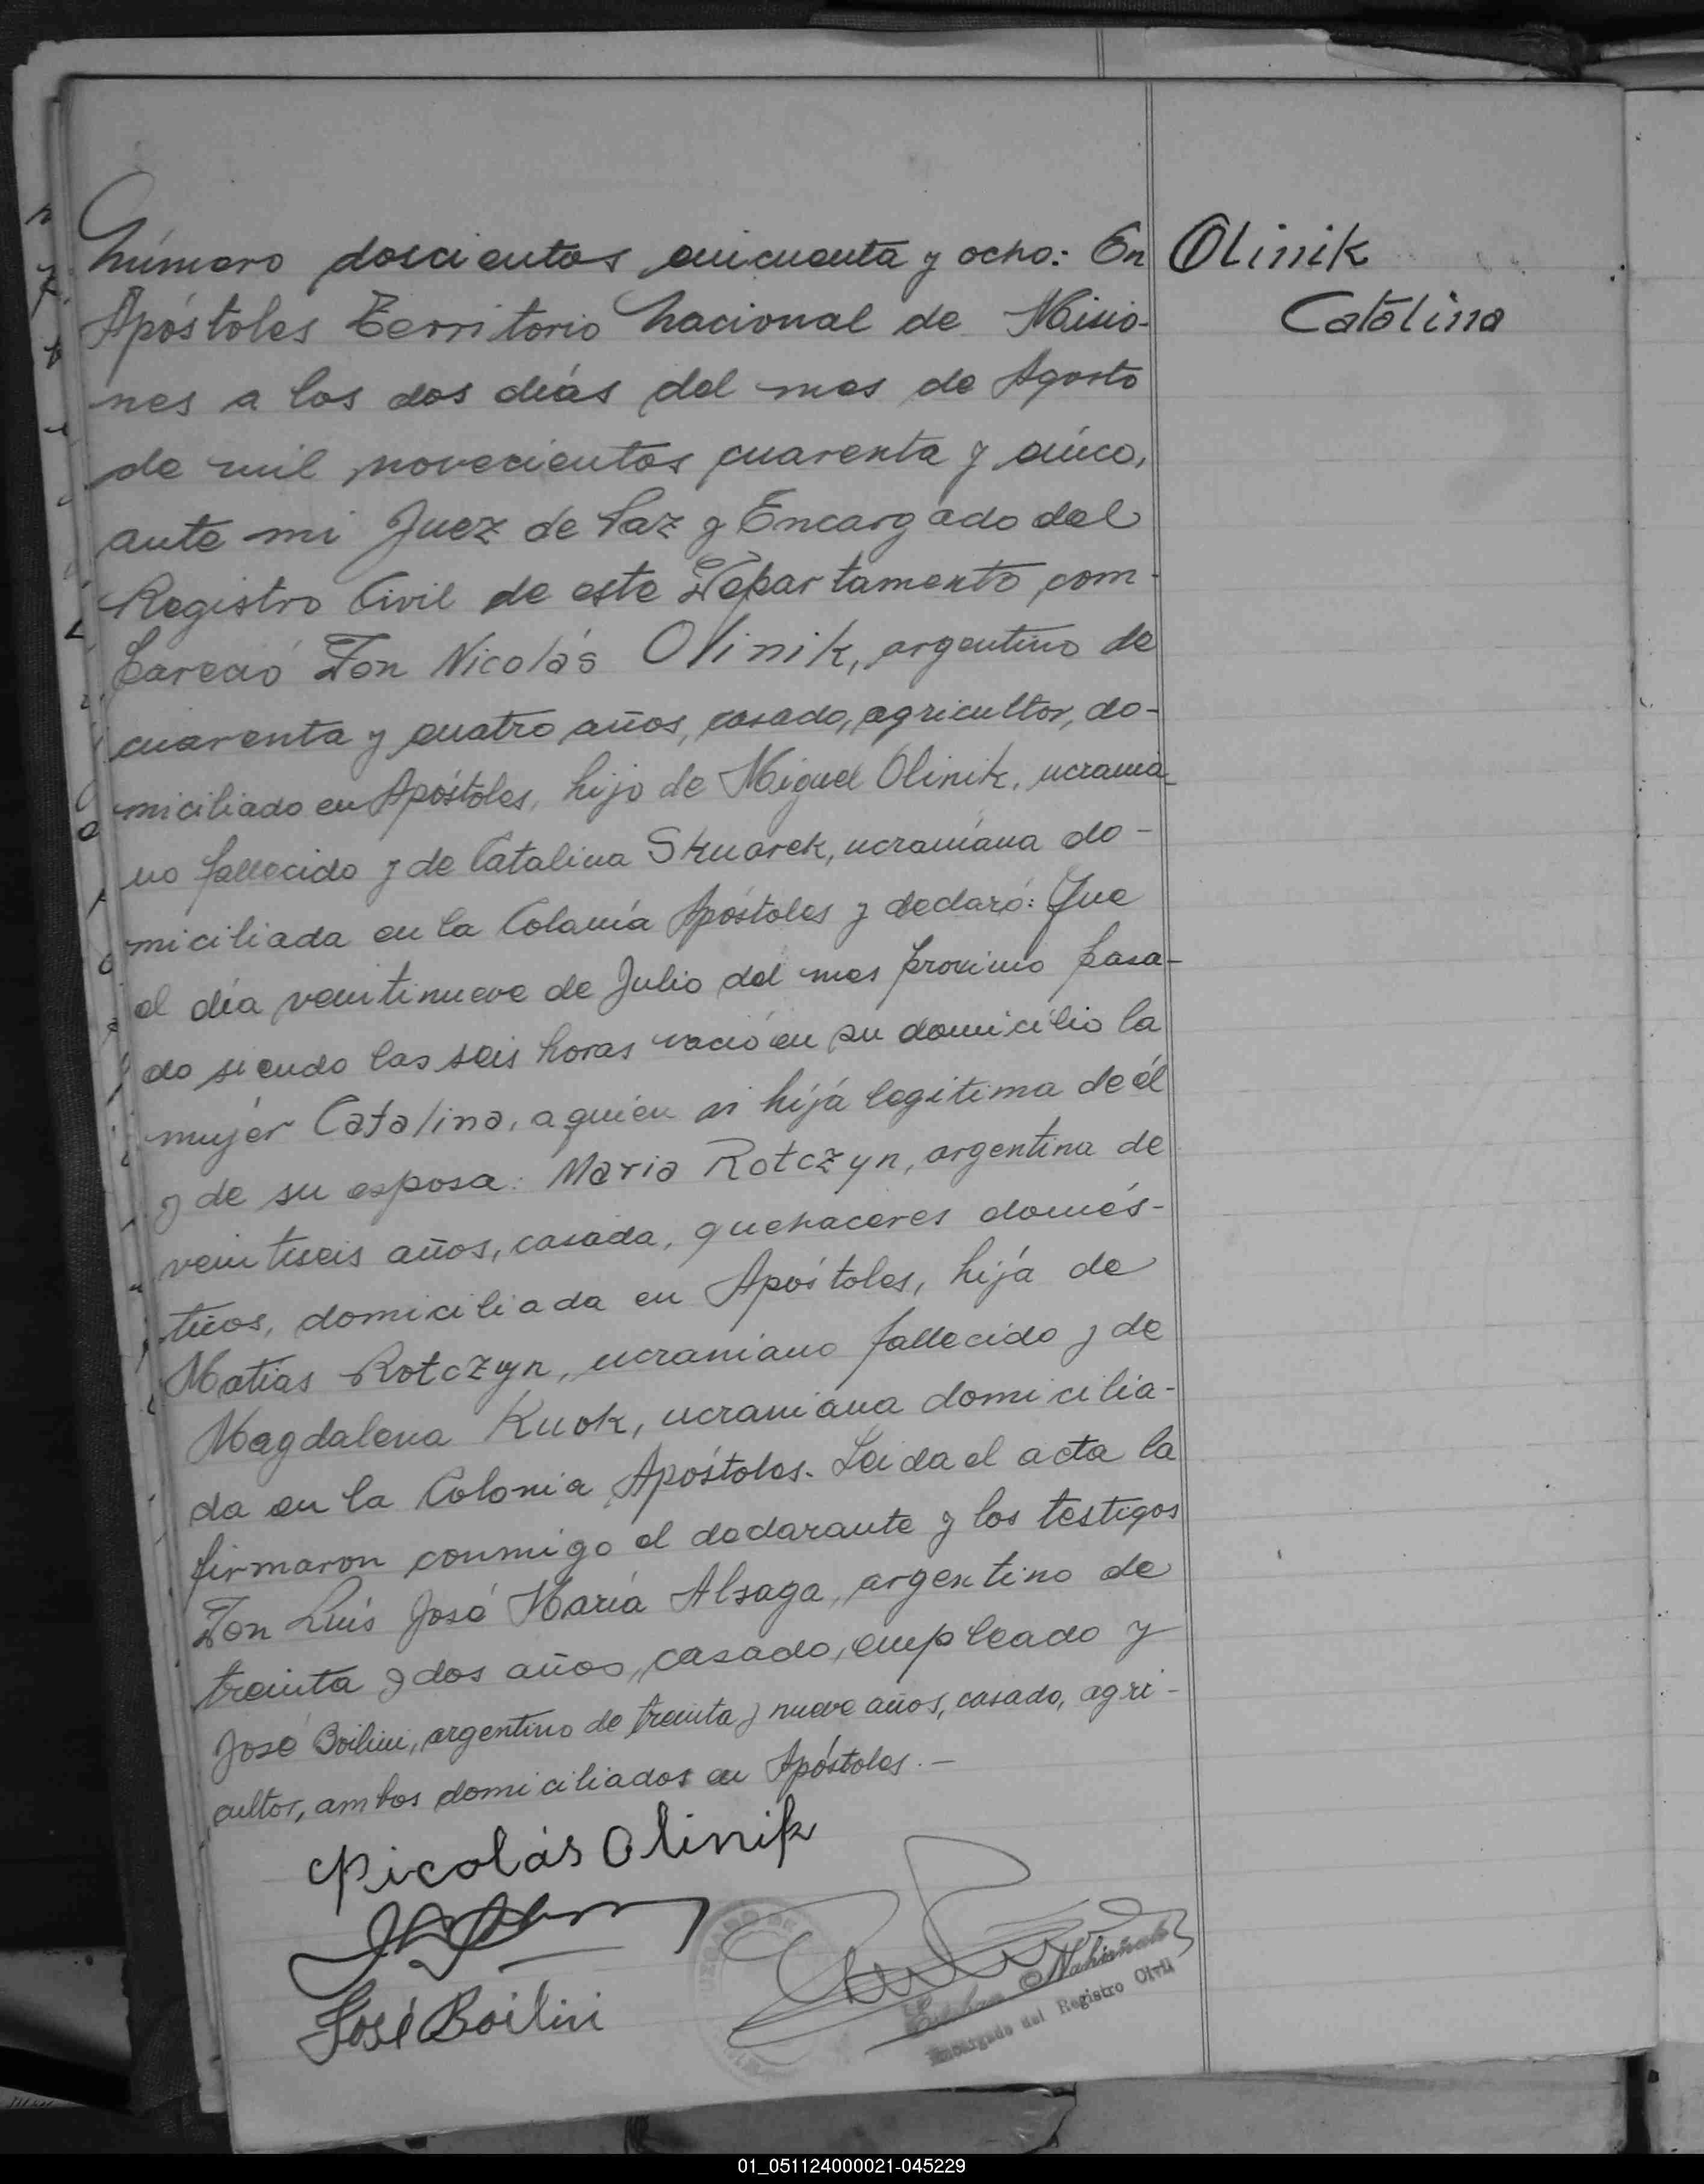 Número doscientos cincuenta y ocho: En
Apóstoles Territorio Nacional de Misio-
nes a los dos días del mes de Agosto
de mil novecientos cuarenta y cinco,
ante mi Juez de Paz y Encargado del
Registro Civil de este Departamento com-
pareció Don Nicolás Olinik, argentino de
cuarenta y cuatro años, casado, agricultor, do-
miciliado en Apóstoles, hijo de Miguel Olinik, ucrania-
no fallecido y de Catalina Skuarek, ucraniana do-
miciliada en la Colonia Apóstoles y declaró: Que
el día veintinueve de Julio del mes proximo pasa-
do siendo las seis horas nació en su domicilio la
mujer Catalina, a quien es hija legitima de él
y de su esposa: Maria Rotczyn, argentina de
veintiseis años, casada, quehaceres domés-
ticos, domiciliada en Apóstoles, hija de
Matías Rotczyn, ucraniano fallecido y de
Magdalena Kuok, ucraniana domicilia-
da en la Colonia Apóstoles. Leida el acta la
firmaron conmigo el declarante y los testigos
Don Luis José María Alsaga, argentino de
treinta y dos años, casado, empleado y
José Boilini, argentino de treinta y nueve años, casado, agri-
cultor, ambos domiciliados en Apóstoles.-
Nicolás Olinik
José Boilini
Encargado del Registro Civil
Olinik
Catalina
01_051124000021-045229